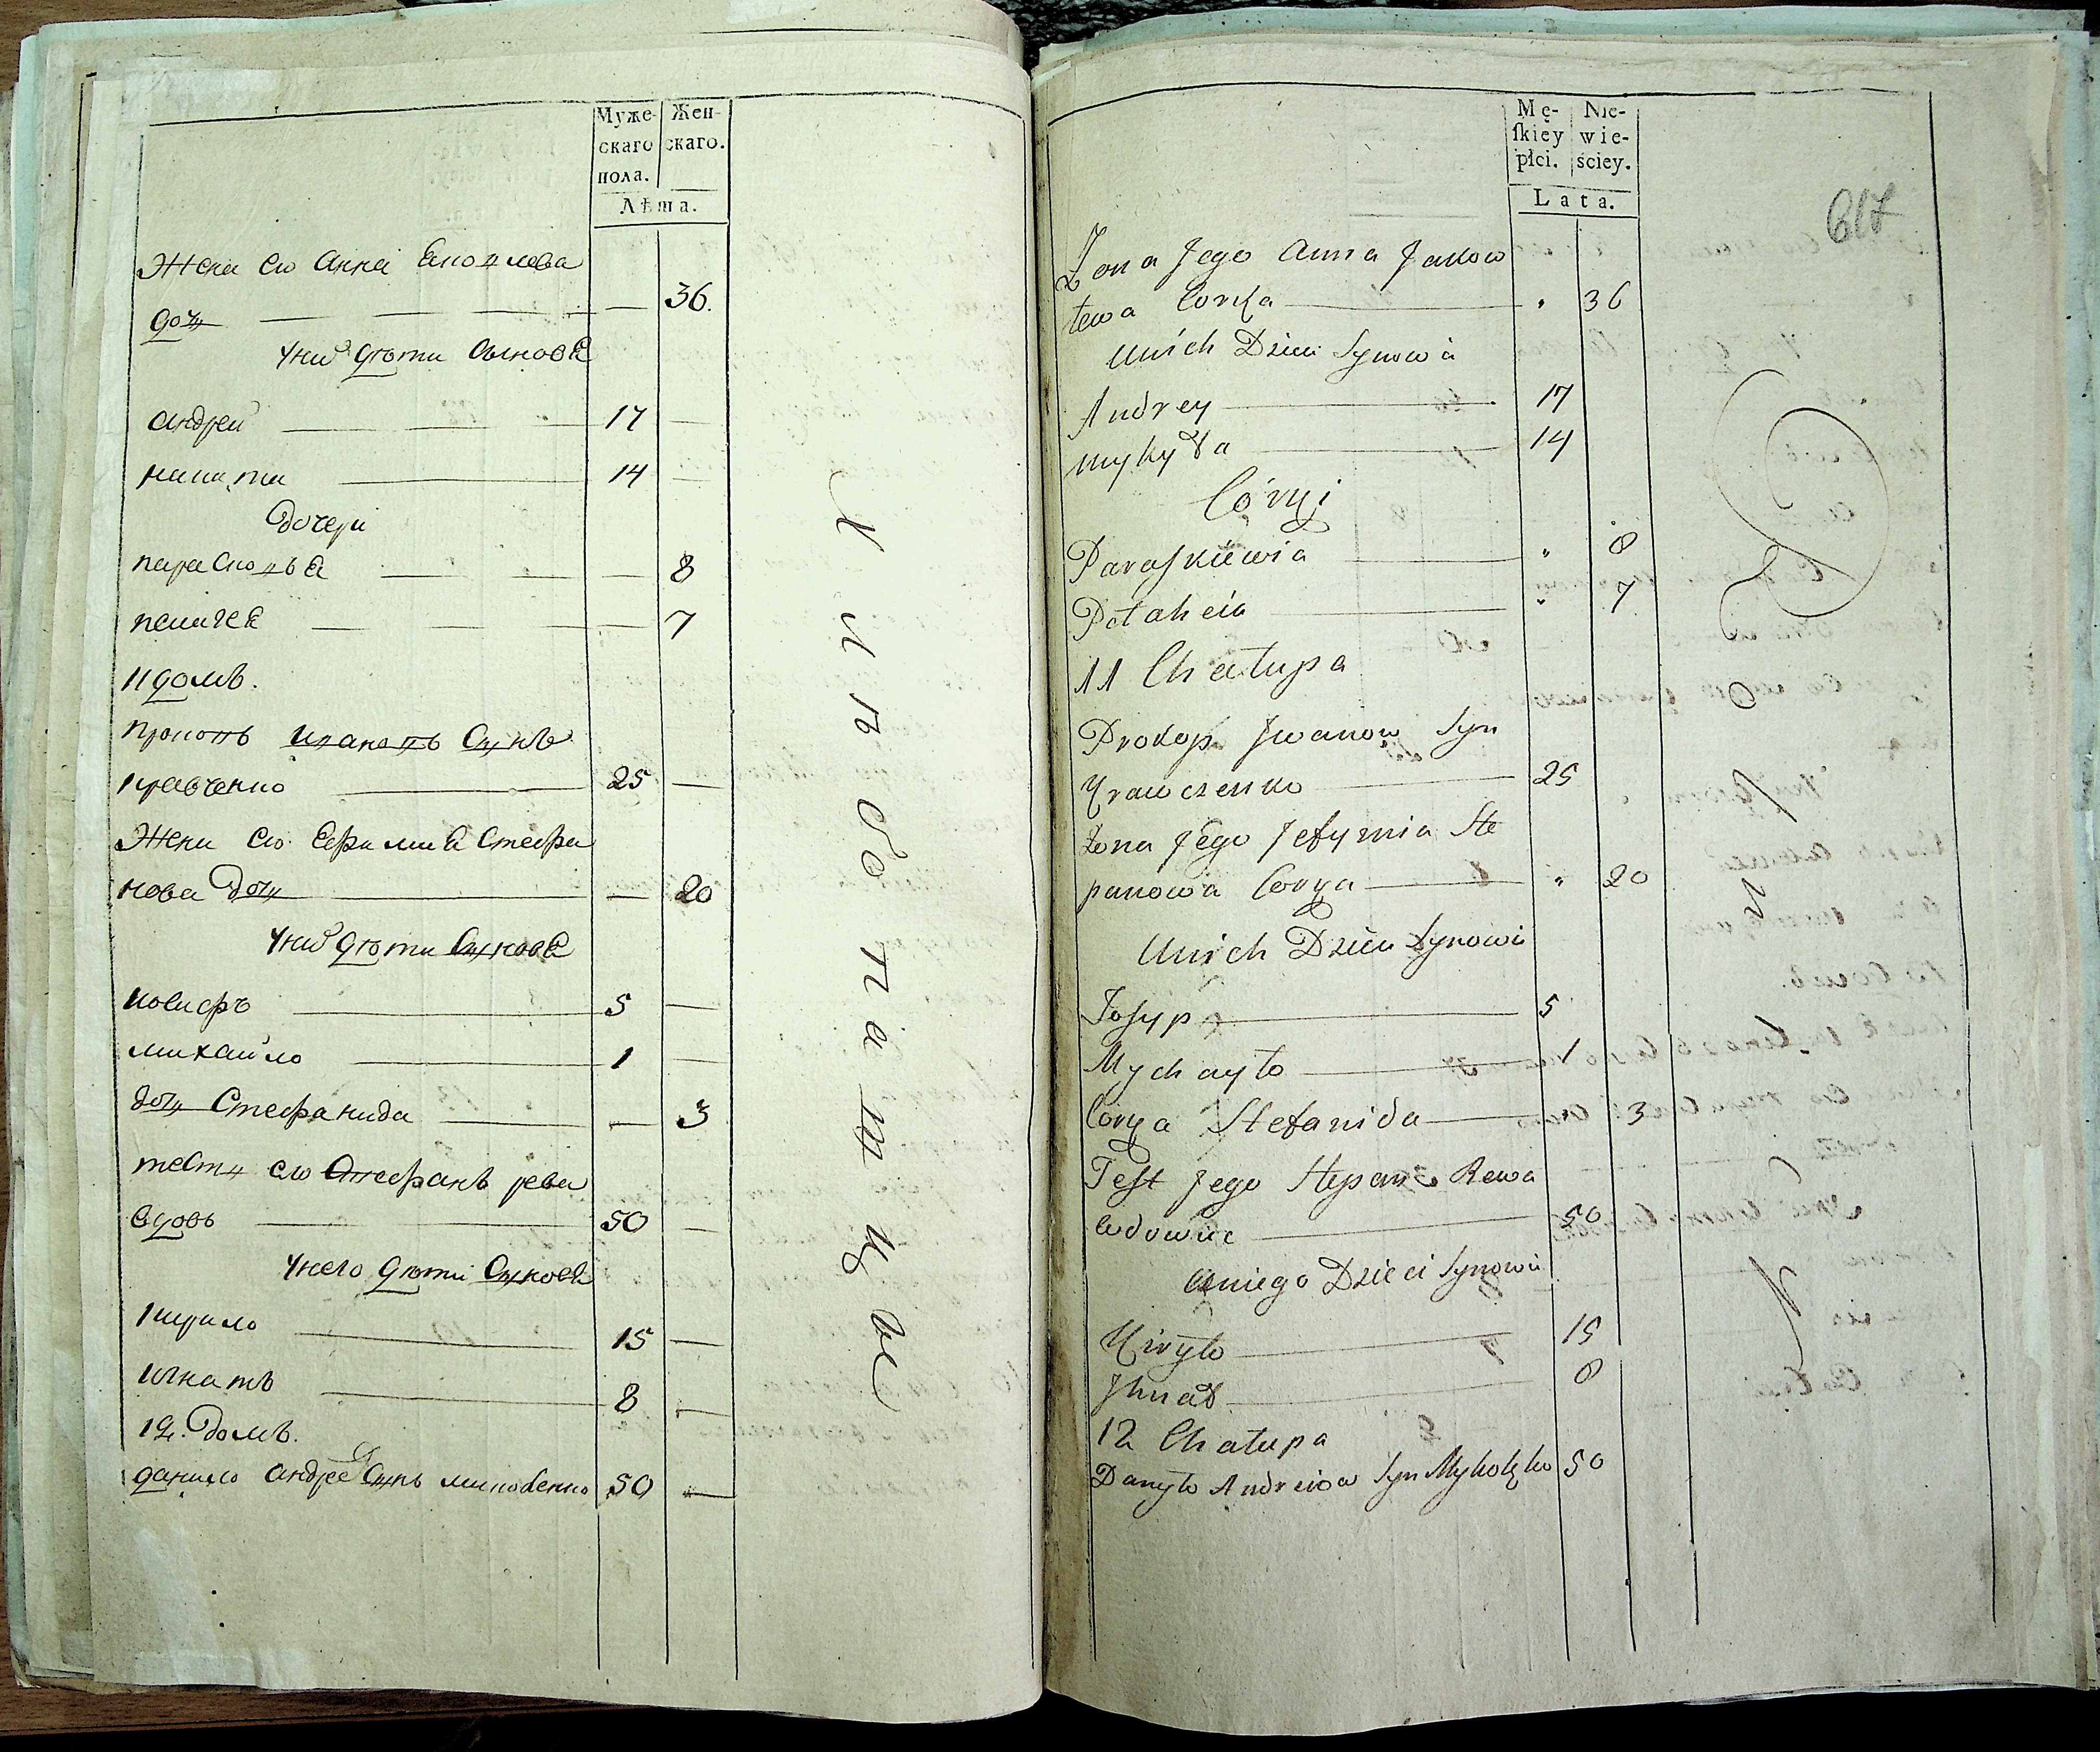 Муже-
скаго
пола.
Жен-
скаго.
Лѣта.
Жена его Анна Яковлева
дочь — 36.
У них дѣти сыновя
Андрей 17 —
Никита 14 —
Дочери
Парасковья — 8
Пелагея — 7
11 домъ.
Прокопъ Ивановъ Сынъ
Кравченко 25 —
Жена его Ефимия Стефа
нова дочь — 20
У них дѣти Сыновя
Иосифъ 5 —
Михайло 1 —
дочь Стефанида — 3
тесть его Стефанъ рева
вдовъ 50 —
У него дѣти Сыновя
Кирило 15 —
Игнатъ 8 —
12. домъ.
Данило Андреевъ Сынъ 50 —
Хлѣбопашцы
Mę-
ſkiey
płci.
Nie-
wie-
ściey.
Lata.
617
Żona Jego Anna Jakow
lewa Corka „ 36
Unich Dzieci Synowie
Andrey 17
Mykyta 14
Córki
Paraſkiewia „ 8
Pelaheia „ 7
11 Chałupa
Prokop Jwanow Syn
Krawczenko 25
Żona Jego Jefymia Ste
panowa Corka „ 20
Unich Dzieci Synowie
Josyp 5
Mychayło 1
Corka Stefanida 3
Teſt Jego Stepan Rewa
wdowiec 50
Uniego Dzieci Synowie
Kiryło 15
Jhnat 8
12 Chałupa
Danyło Andreiow Syn 50